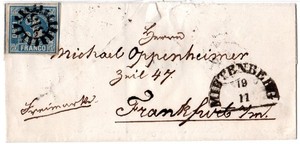 FRANCO
Herrn
Michael Oppenheimer
Zeil 47
Freimarke
Frankfurt a/m.
MILTENBERG
19
11